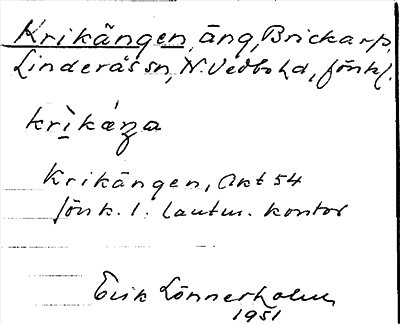 Krikängen, äng, Brickarp,
Linderås sn, N. Vedbo hd, Jönk l.
krìkæŋa
Krikängen, Akt 54
Jönk. l. lantm. kontor
Erik Lönnerholm
1951